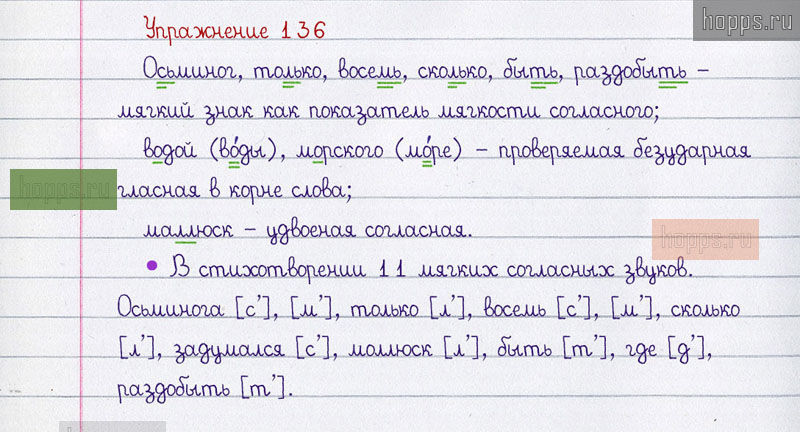 hopps.ru
Упражнение 136
Осьминог, только, восемь, сколько, быть, раздобыть –
мягкий знак как показатель мягкости согласного;
водой (во́ды), морского (мо́ре) – проверяемая безударная
hopps.ru
гласная в корне слова;
маллюск – удвоеная согласная.
hopps.ru
• В стихотворении 11 мягких согласных звуков.
Осьминога [с’], [м’], только [л’], восемь [с’], [м’], сколько
[л’], задумался [с’], моллюск [л’], быть [т’], где [д’],
раздобыть [т’].